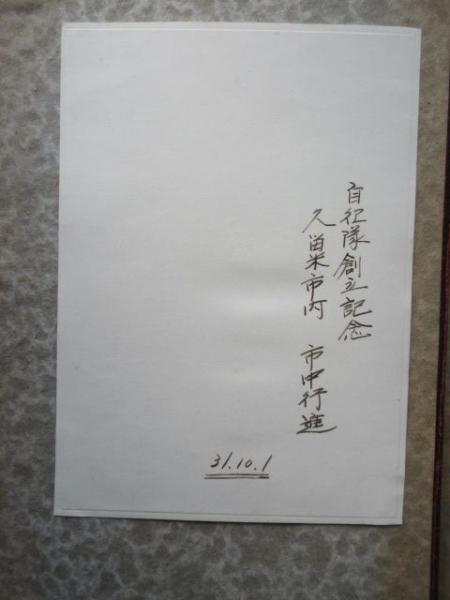 自衛隊創立記念
久留米市内 市中行進
31.10.1